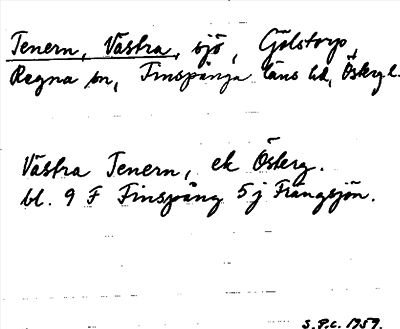 Tenern, Västra, sjö, Gölstorp,
Regna sn, Finspånga läns hd, Östergl.
Västra Tenern, ek Österg.
bl. 9 F Finspång 5 j Frängsjön.
S.P.C. 1959.